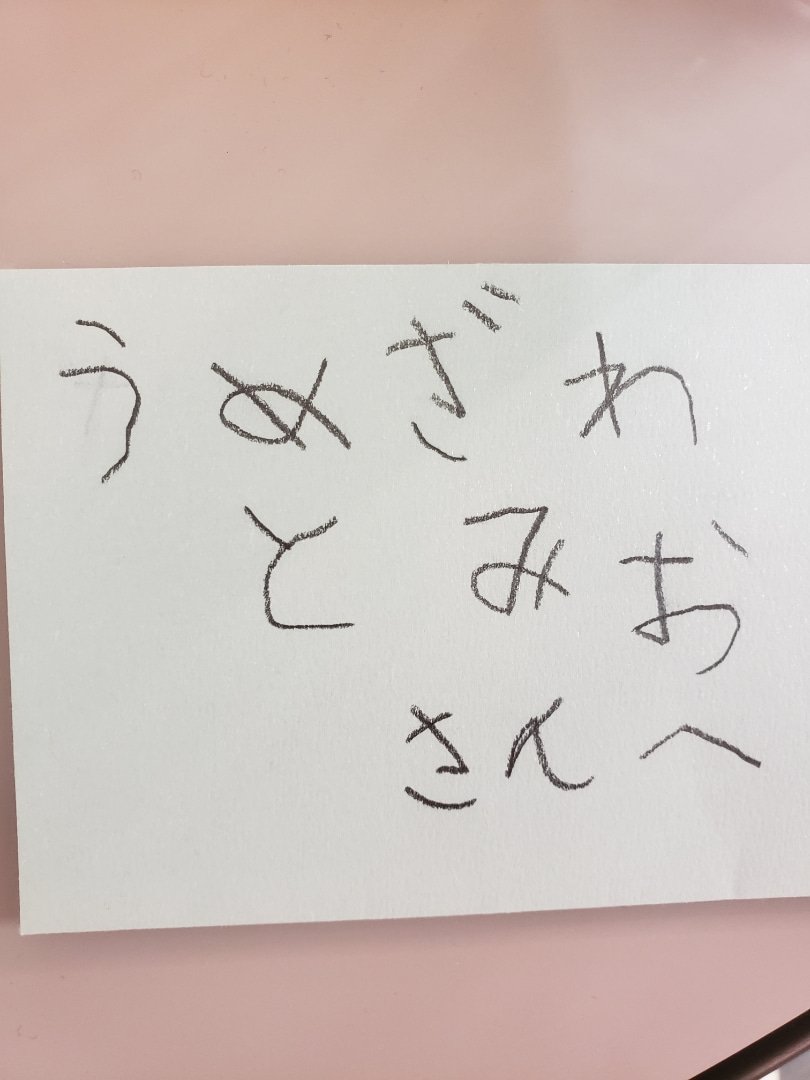 うめざわ
とみお
さんへ